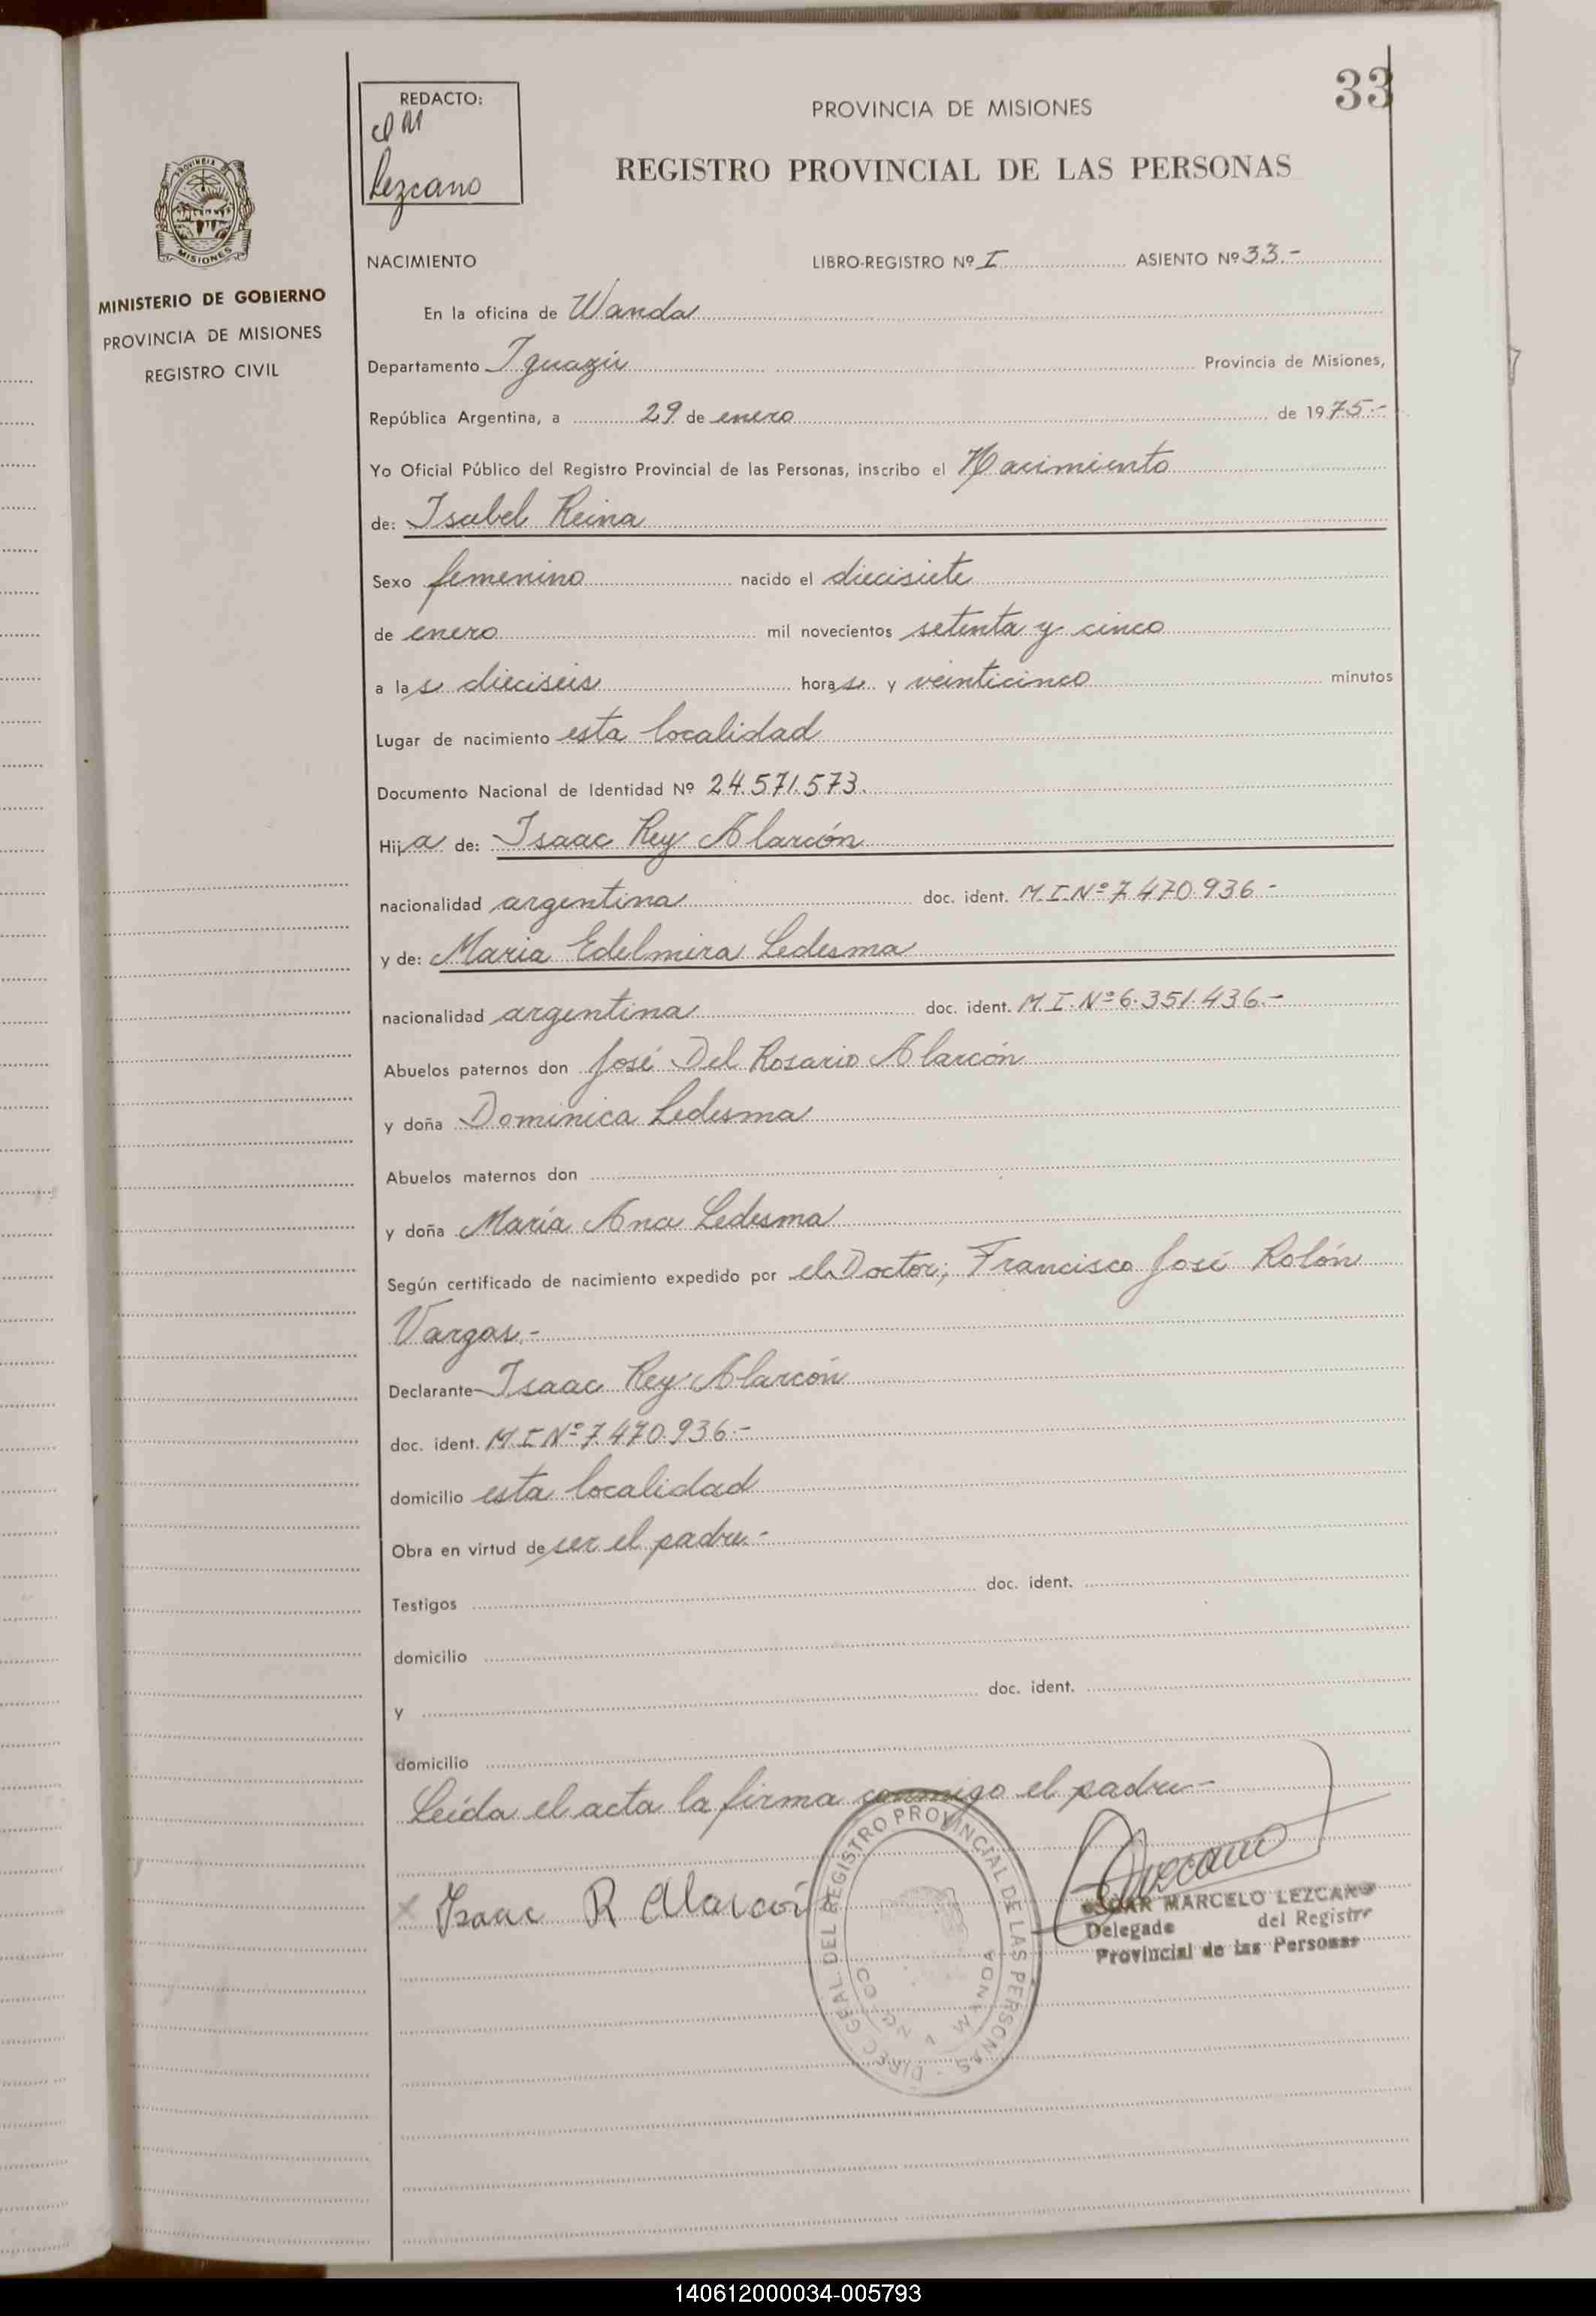 33
REDACTO:
Lezcano
PROVINCIA DE MISIONES
REGISTRO PROVINCIAL DE LAS PERSONAS
PROVINCIA DE
MISIONES
MINISTERIO DE GOBIERNO
PROVINCIA DE MISIONES
REGISTRO CIVIL
NACIMIENTO LIBRO-REGISTRO Nº I ASIENTO Nº 33.-
En la oficina de Wanda
Departamento Iguazú Provincia de Misiones,
República Argentina, a 29 de enero de 1975.-
Yo Oficial Público del Registro Provincial de las Personas, inscribo el Nacimiento
de: Isabel Reina
Sexo femenino nacido el diecisiete
de enero mil novecientos setenta y cinco
a las dieciseis horas y veinticinco minutos
Lugar de nacimiento esta localidad
Documento Nacional de Identidad Nº 24.571.573.
Hija de: Isaac Rey Alarcón
nacionalidad argentina doc. ident. M.I.Nº 7.470.936-
y de: Maria Edelmira Ledesma
nacionalidad argentina doc. ident. M.I.Nº 6.351.436.-
Abuelos paternos don José Del Rosario Alarcón
y doña Dominica Ledesma
Abuelos maternos don
y doña María Ana Ledesma
Según certificado de nacimiento expedido por el Doctor; Francisco José Rolón
Vargas.-
Declarante Isaac Rey Alarcón
doc. ident. M.I.Nº 7.470.936.-
domicilio esta localidad
Obra en virtud de ser el padre.-
Testigos doc. ident.
domicilio
y doc. ident.
domicilio
Leída el acta la firma conmigo el padre.-
Isaac R Alarcón
DIREC GRAL DEL REGISTRO PROVINCIAL DE LAS PERSONAS
WANDA
OSCAR MARCELO LEZCANO
Delegado del Registro
Provincial de las Personas
140612000034-005793